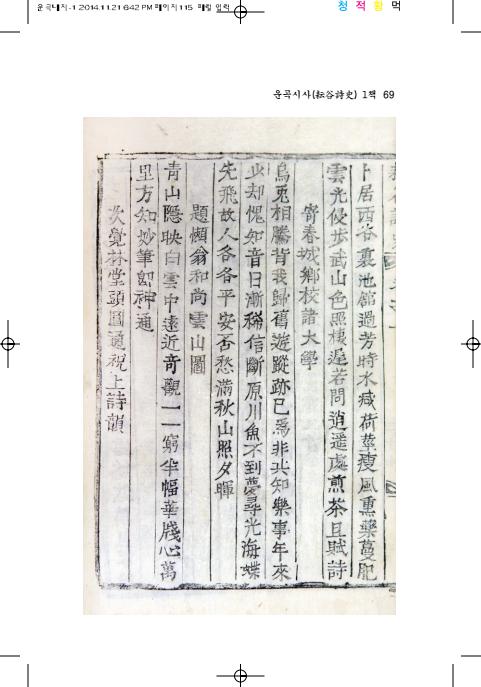 운곡내지-1 2014.11.21 6:42 PM 페이지115 매킨 입력
청 적 황 먹
운곡시사(耘谷詩史) 1책 69
卜居西谷裏池舘過芳時水減荷莖瘦風熏藥蔓肥
雲光侵步武山色照棲遲若問逍遥處煎茶且賦詩
寄春城鄉校諸大學
烏兎相騰背我歸舊遊蹤跡已爲非共知樂事年來
少却愧知音日漸稀信斷原川魚不到夢尋光海蝶
先飛故人各各平安否愁滿秋山照夕暉
題懶翁和尚雲山圖
青山隱映白雲中遠近奇觀一一窮半幅華牋心萬
里方知妙筆卽神通
次覺林堂頭圓通祝上詩韻